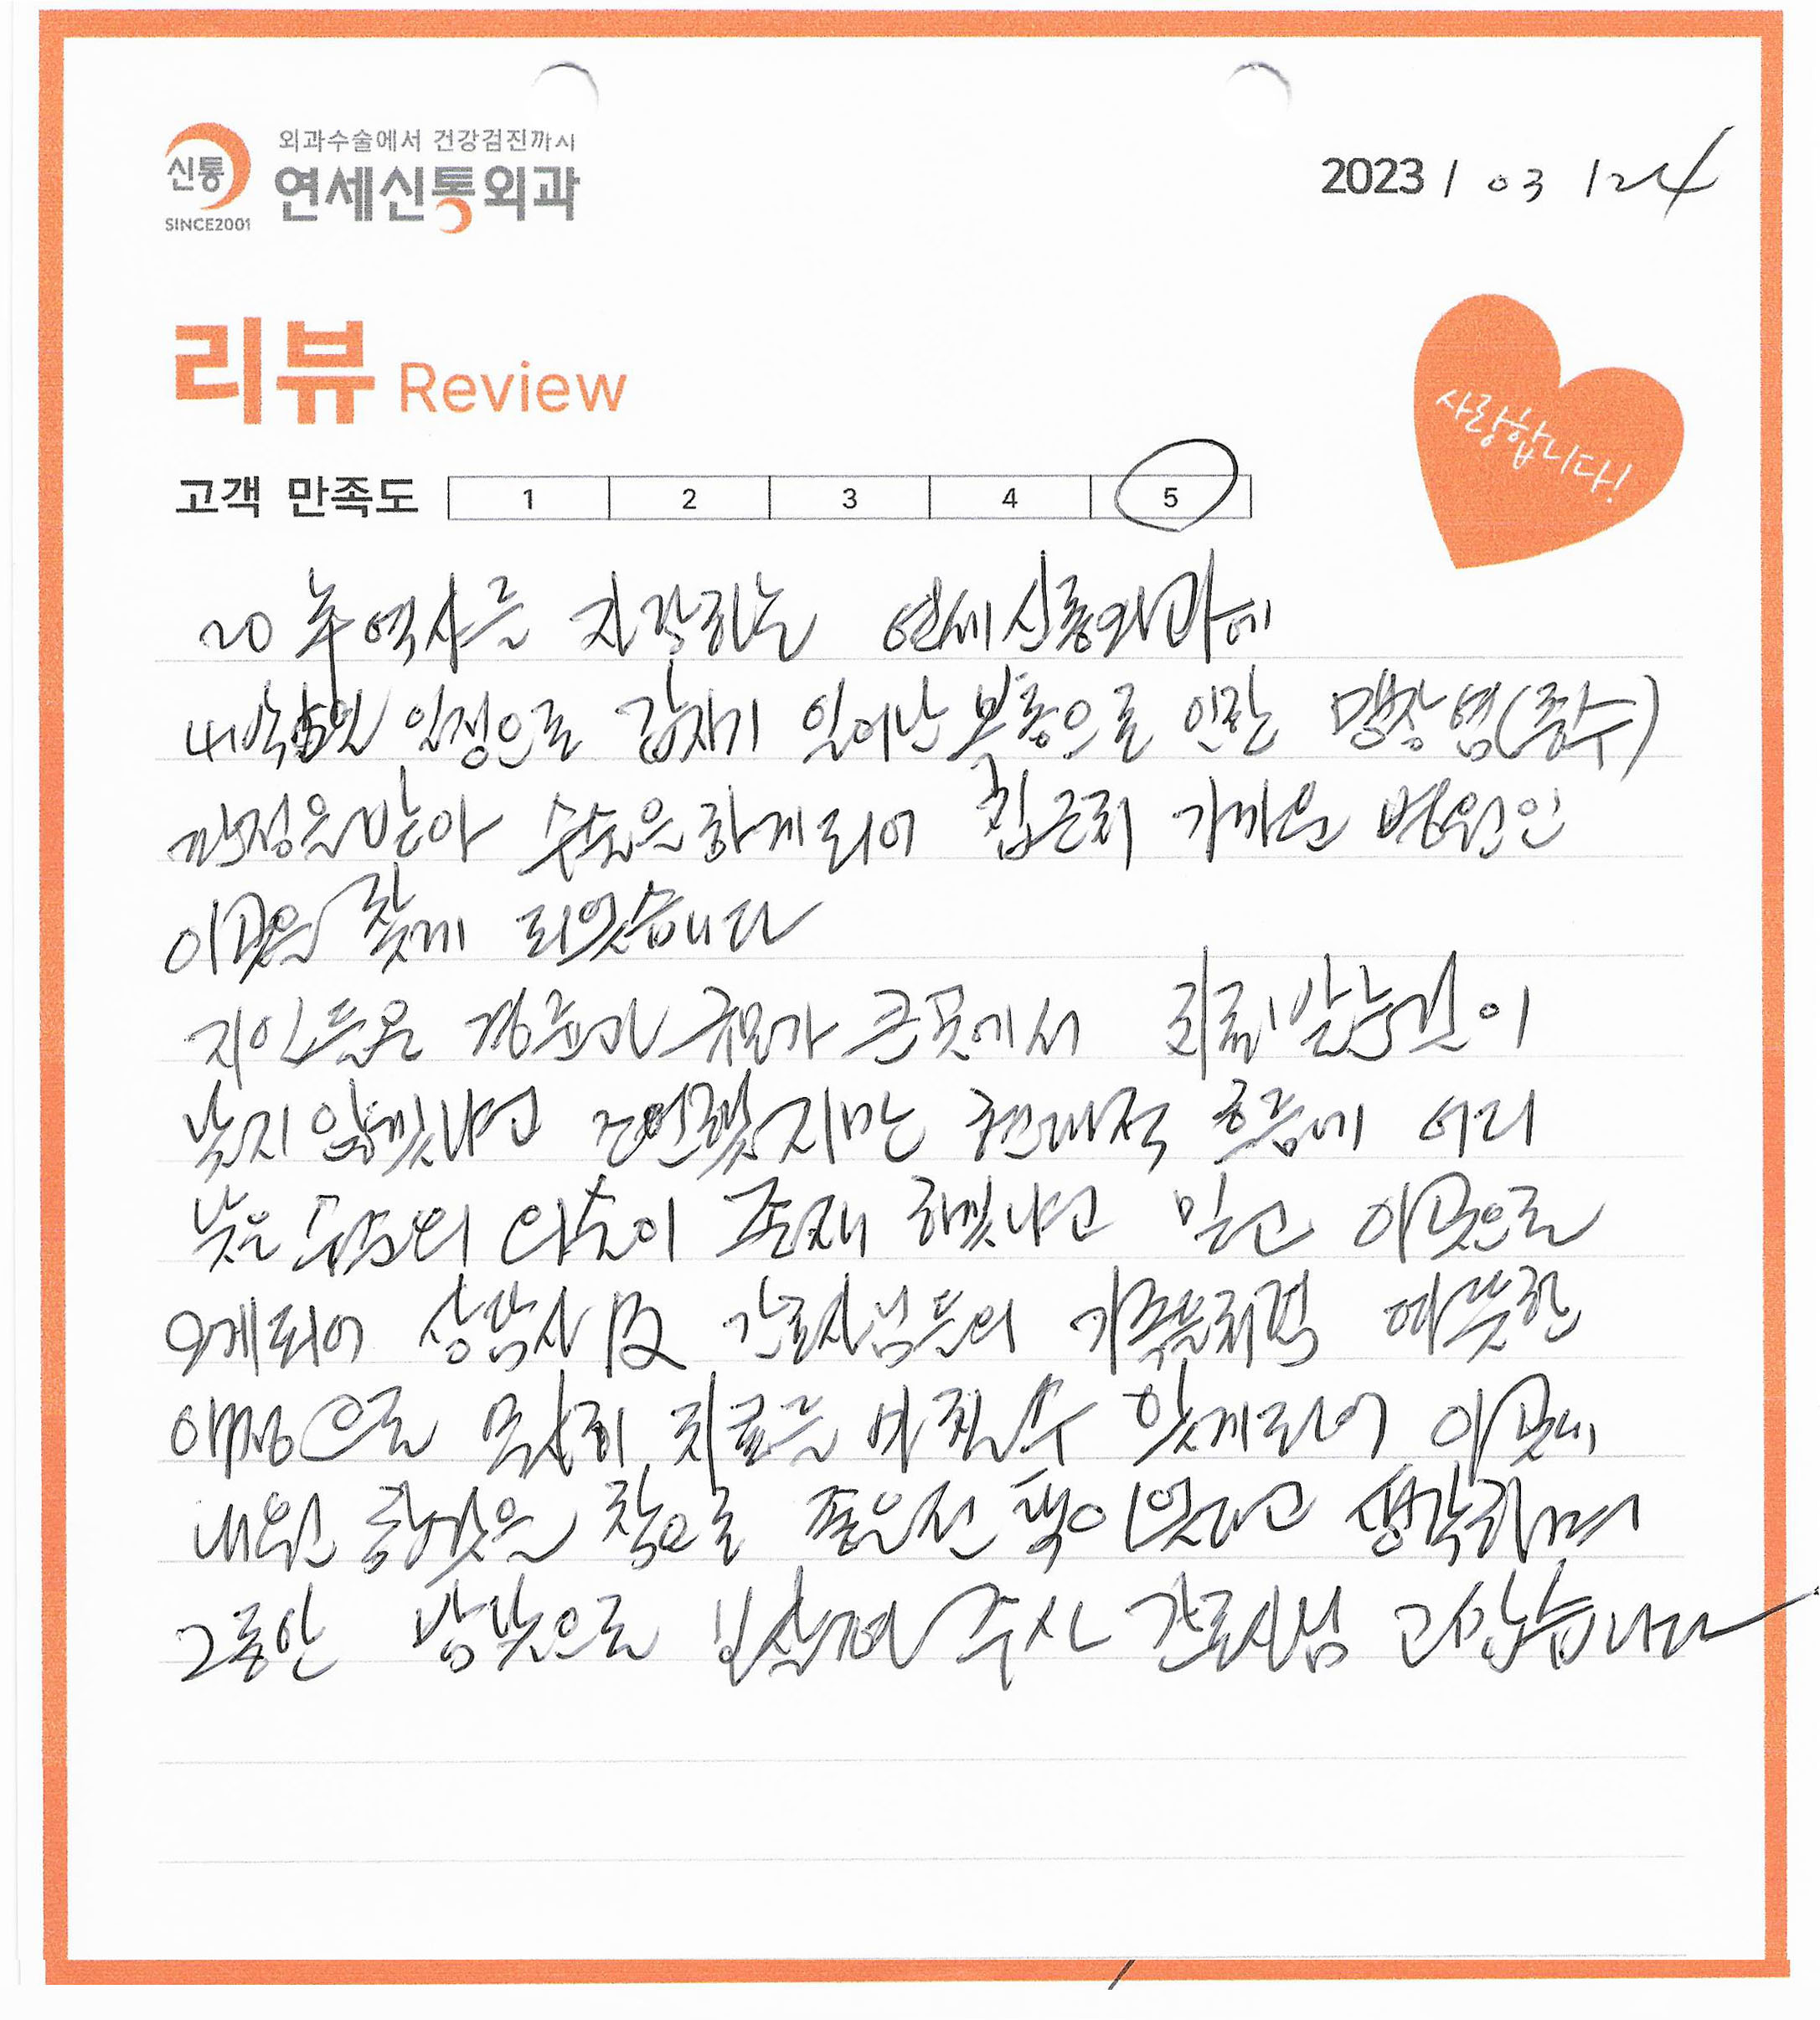 외과수술에서 건강검진까지
신통 연세신통외과
SINCE2001
2023 / 03 / 24
리뷰 Review
사랑합니다!
고객 만족도 1 2 3 4 5
20年 역사를 자랑하는 연세신통외과에
4박5일 일정으로 갑자기 일어난 복통으로 인한 맹장염(충수)
판정을 받아 수술을 하게되어 집근처 가까운 병원인
이곳을 찾게 되었습니다
지인들은 경륜과 규모가 큰곳에서 치료 받는것이
낫지 않겠냐며 조언했지만 현대적 흐름에 어디
낮은 수준의 의술이 존재 하겠냐고 믿고 이곳으로
오게되어 상담사 及 간호사님들의 가족들처럼 따뜻한
애정으로 무사히 치료를 마칠수 있게되어 이곳에
내원 한것은 참으로 좋은선택이였다고 생각하며
그동안 밤낮으로 보살펴 주신 간호사님 고맙습니다